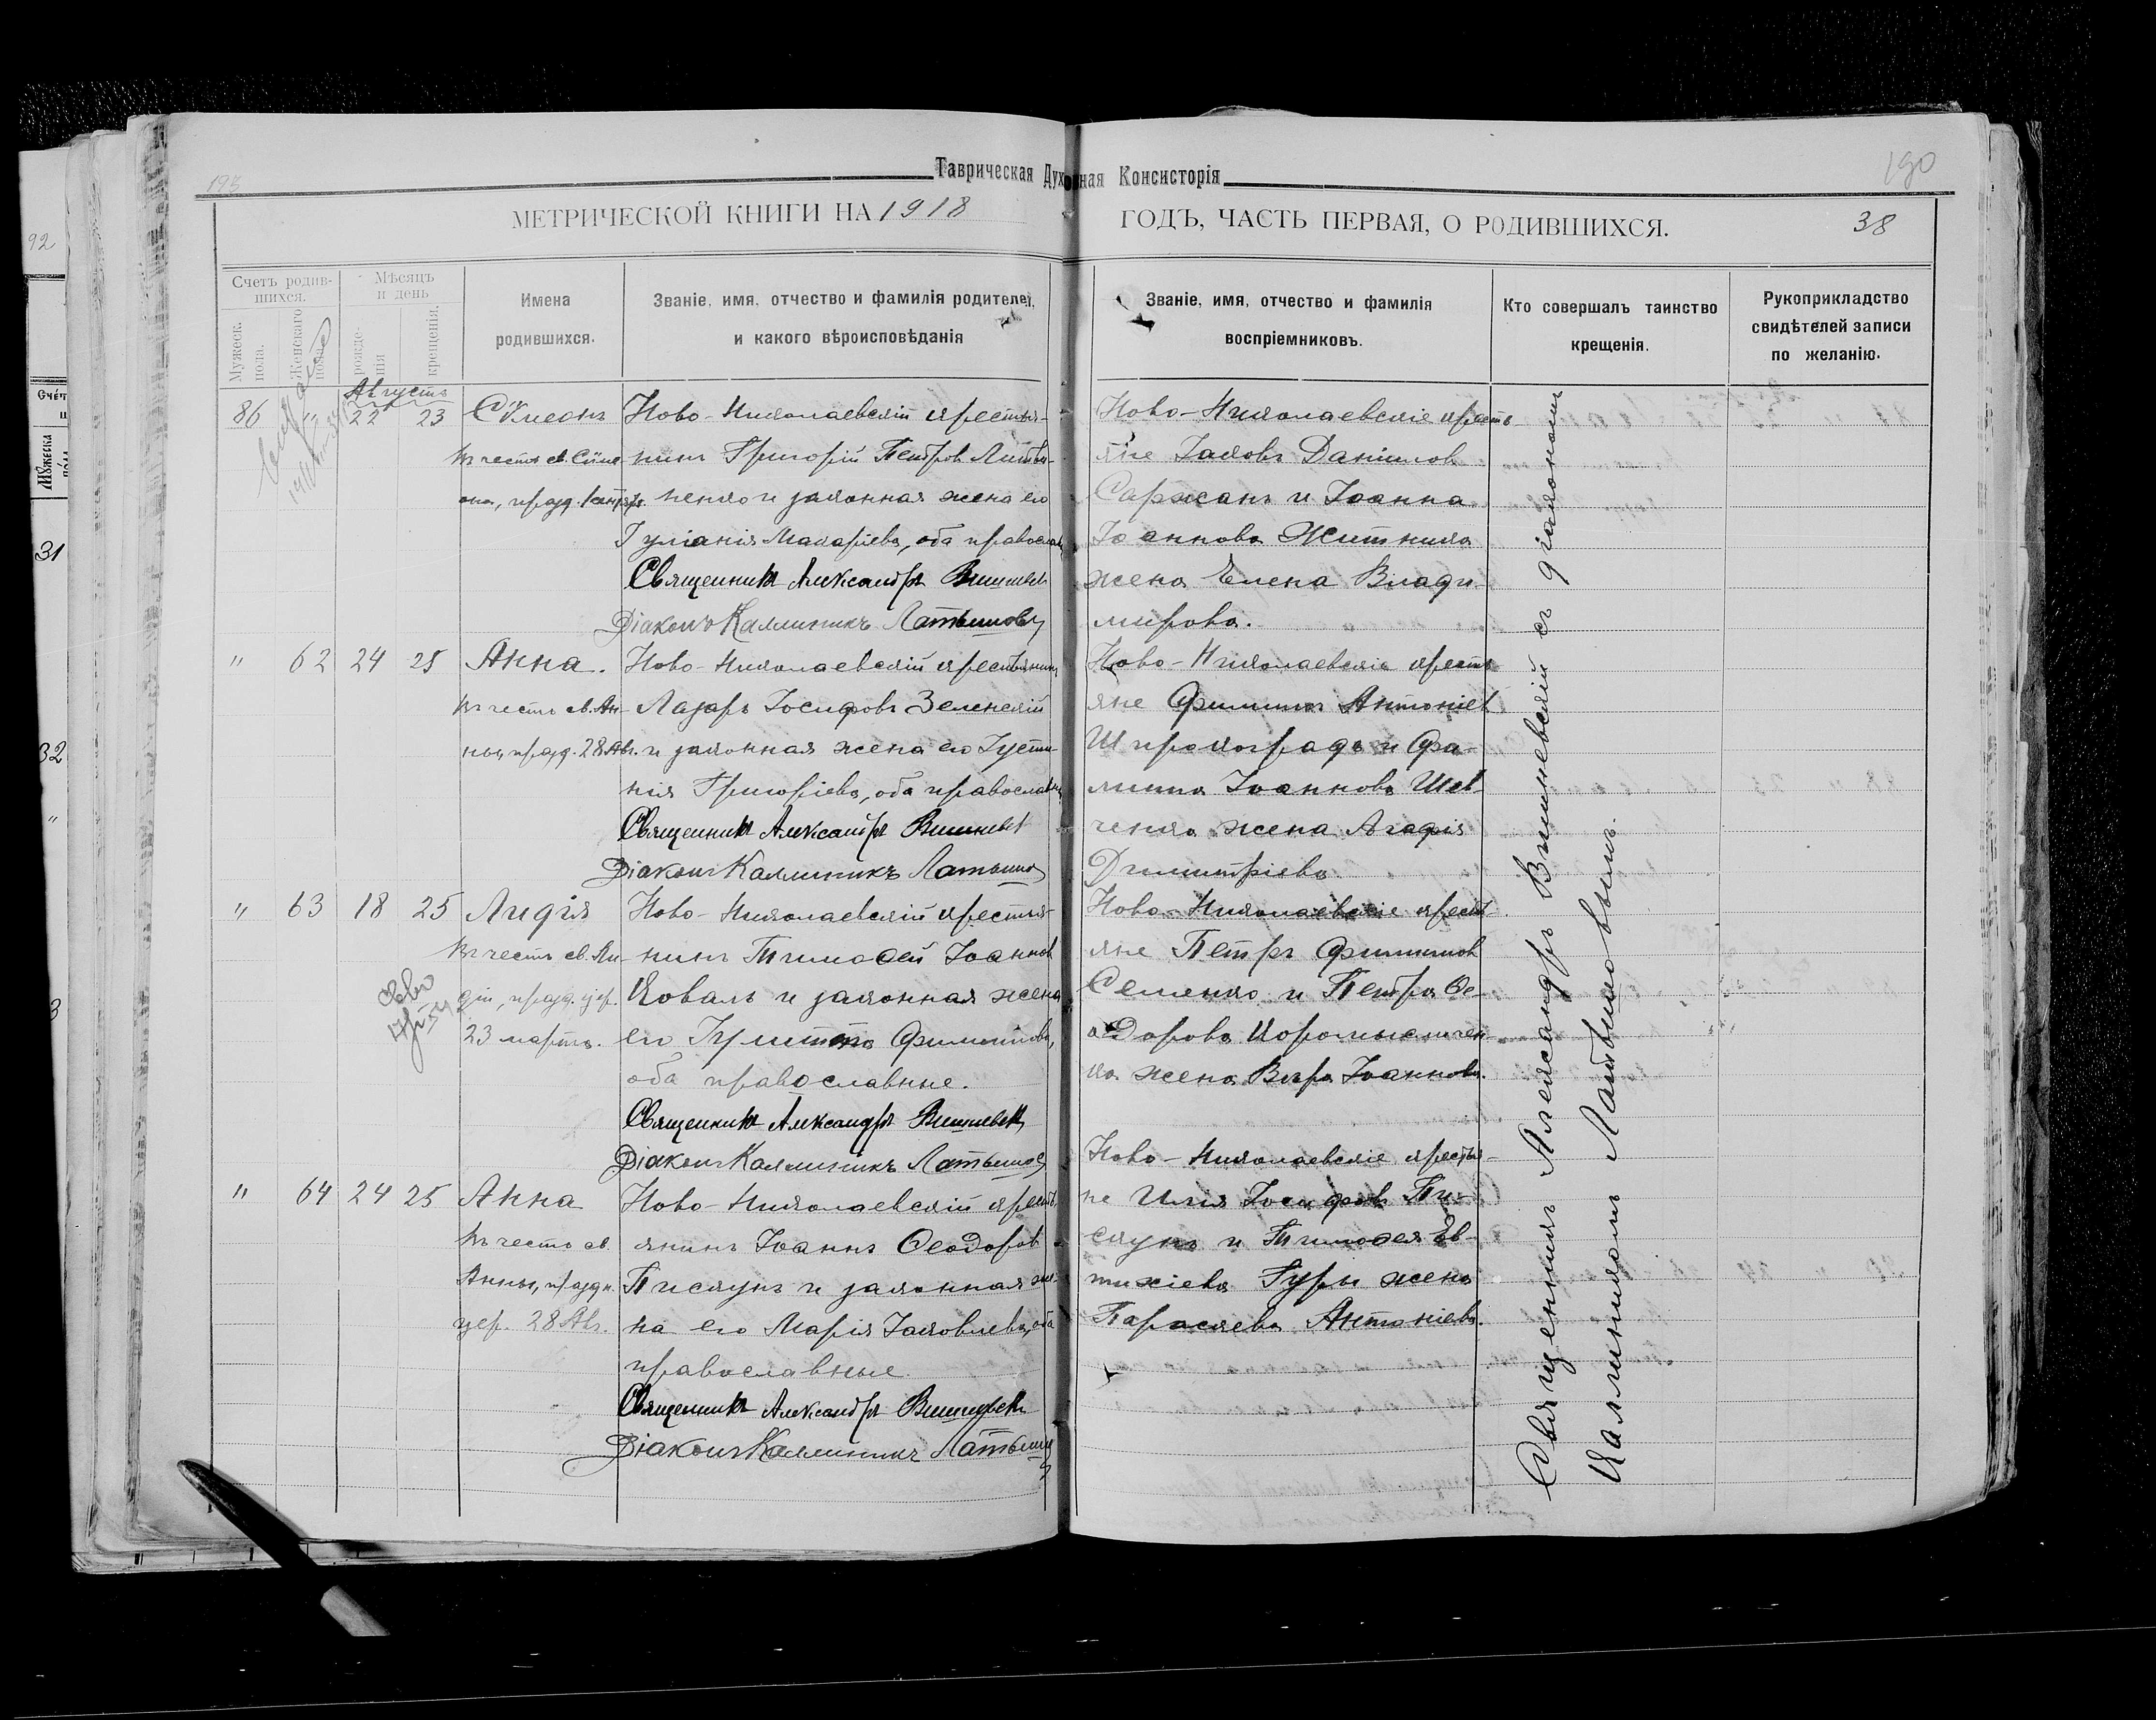 Таврическая Духовная Консисторія
190
МЕТРИЧЕСКОЙ КНИГИ НА 1918
ГОДЪ, ЧАСТЬ ПЕРВАЯ, О РОДИВШИХСЯ.
38
Счетъ родив-
шихся.
Мужеск.
пола.
Женскаго
пола.
Мѣсяцъ
и день
рожде-
нія
крещенія.
Имена
родившихся.
Званіе, имя, отчество и фамилія родителей,
и какого вѣроисповѣданія
Званіе, имя, отчество и фамилія
воспріемниковъ.
Кто совершалъ таинство
крещенія.
Рукоприкладство
свидѣтелей записи
по желанію.
Августъ
86 " 22 23
Сѵмеонъ
въ честь св. Сѵме-
она, празд.
Ново-Николаевскій крестья-
нинъ Григорій Петровъ Литви-
ненко и законная жена его
Іуліанія Макаріева, оба православн
Священникъ Александръ Вишневск
Діаконъ Каллиникъ Латышовъ
Ново-Николаевскіе кресть-
яне Іаковъ Даніиловъ
Саржанъ и Іоанна
Іоаннова Житника
жена Елена Влади-
мирова.
" 62 24 25
Анна.
въ честь св. Ан-
ны, празд. 28 Авг.
Ново-Николаевскій крестьянинъ
Лазарь Іосифовъ Зеленскій
и законная жена его Іусти-
нія Григоріева, оба православн
Священникъ Александръ Вишневск
Діаконъ Каллиникъ Латышов
Ново-Николаевскіе кресть-
яне Филиппъ Антоніев
Широкоградъ и Фи-
липпа Іоаннова Шев-
ченко жена Агафія
Димитріева
" 63 18 25
Лидія
въ честь св. Ли-
діи, празд. цер.
23 марта.
Ново-Николаевскій крестья-
нинъ Тимоѳей Іоаннов
Коваль и законная жена
его Іулитта Филиппова,
оба православные.
Священникъ Александръ Вишневск
Діаконъ Каллиникъ Латышов
Ново-Николаевскіе кресть-
яне Петръ Филиппов
Семенко и Петра Ѳе-
одорова Коромысличен-
ка жена Вѣра Іоаннова.
" 64 24 25
Анна
въ честь св.
Анны, праздн.
цер. 28 Авг.
Ново-Николаевскій кресть-
янинъ Іоаннъ Ѳеодоров
Пискунъ и законная же-
на его Марія Іаковлева, оба
православные.
Священникъ Александръ Вишневск
Діаконъ Каллиникъ Латышов
Ново-Николаевскіе крестья-
не Илія Іосифовъ Пи-
скунъ и Тимоѳея Ев-
тихіева Гуры жена
Параскева Антоніева.
Священникъ Александръ Вишневскій съ діакономъ
Каллиникомъ Латышовымъ.
92
31
32